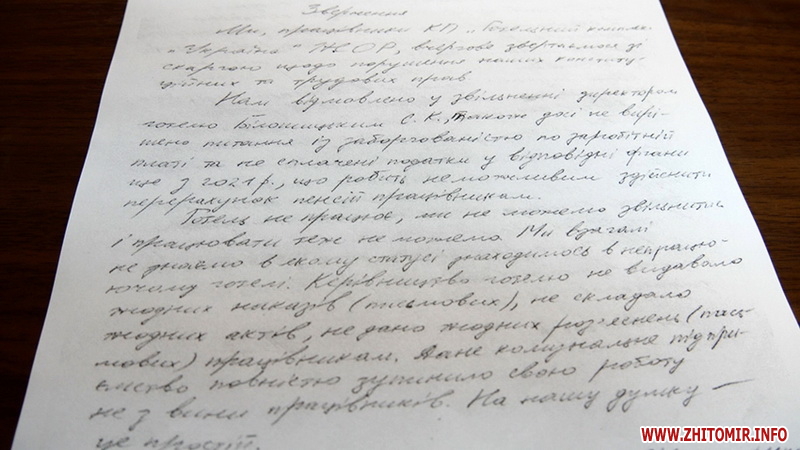 Звернення
Ми, працівники КП „Готельний комплекс
„Україна" ЖОР, вчергове звертаємося зі
скаргою щодо порушення наших конститу-
ційних та трудових прав.
Нам відмовлено у звільненні директором
готелю Білошицьким С.К., також досі не вирі-
шено питання із заборгованістю по заробітній
платі та не сплачені податки у відповідні фонди
ще з 2021 р., що робить неможливим здійснити
перерахунок пенсій працівникам.
Готель не працює, ми не можемо звільнитись
і працювати теж не можемо. Ми взагалі
не знаємо в якому статусі знаходимось в непрацю-
ючому готелі. Керівництво готелю не видавало
жодних наказів (письмових), не складало
жодних актів, не дано жодних роз'яснень (пись-
мових) працівникам. Дане комунальне підпри-
ємство повністю зупинило свою роботу
не з вини працівників. На нашу думку —
це простій.
WWW.ZHITOMIR.INFO